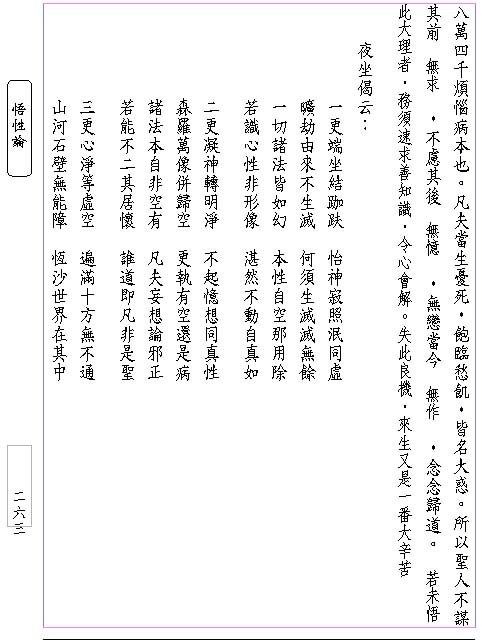 八萬四千煩惱病本也。凡夫當生憂死，飽臨愁飢，皆名大惑。所以聖人不謀
其前　無求　，不慮其後　無憶　，無戀當今　無作　，念念歸道。　若未悟
此大理者，務須速求善知識，令心會解。失此良機，來生又是一番大辛苦
夜坐偈云：
一更端坐結跏趺　怡神寂照泯同虛
曠劫由來不生滅　何須生滅滅無餘
一切諸法皆如幻　本性自空那用除
若識心性非形像　湛然不動自真如
二更凝神轉明淨　不起憶想同真性
森羅萬像併歸空　更執有空還是病
諸法本自非空有　凡夫妄想論邪正
若能不二其居懷　誰道即凡非是聖
三更心淨等虛空　遍滿十方無不通
山河石壁無能障　恆沙世界在其中
悟性論
二六三